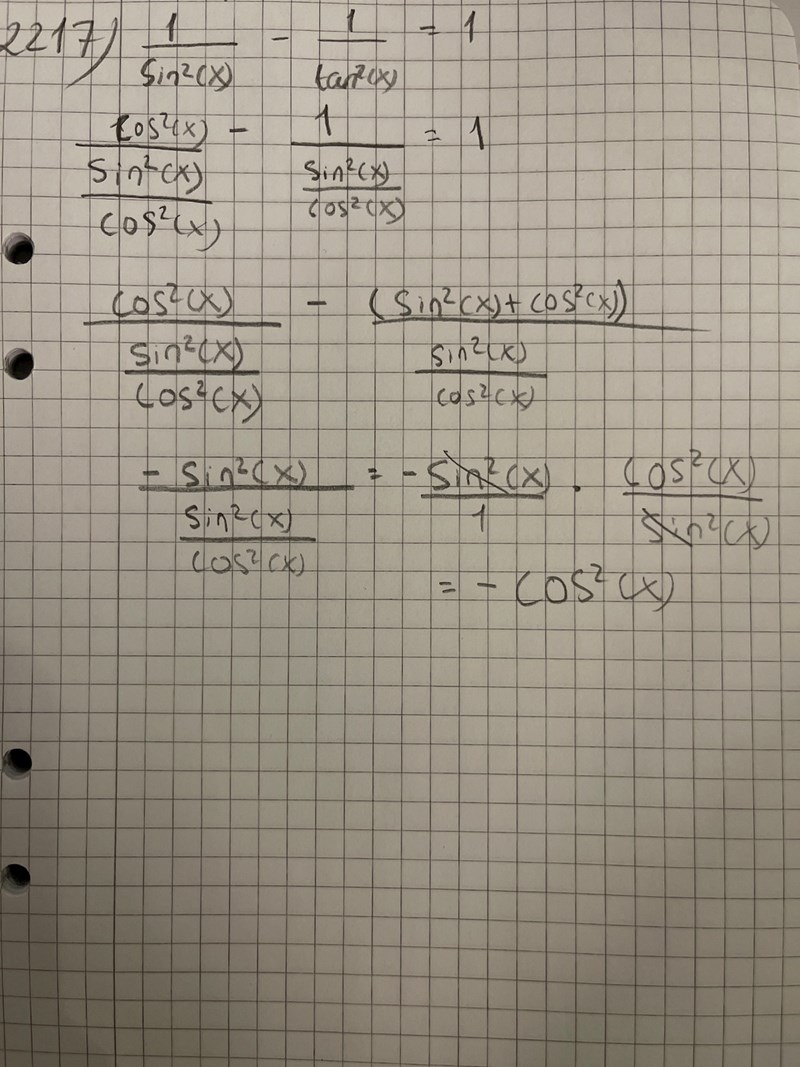 2217) 1/sin²(x) - 1/tan²(x) = 1
cos²(x)/(sin²(x)/cos²(x)) - 1/(sin²(x)/cos²(x)) = 1
cos²(x)/(sin²(x)/cos²(x)) - (sin²(x)+cos²(x))/(sin²(x)/cos²(x))
-sin²(x)/(sin²(x)/cos²(x)) = -sin²(x)/1 · cos²(x)/sin²(x)
= - cos²(x)